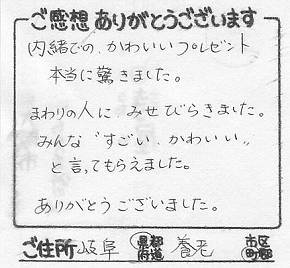 ご感想ありがとうございます
内緒での、かわいいプレゼント
本当に驚きました。
まわりの人に みせびらきました。
みんな〝すごい、かわいい〟
と言ってもらえました。
ありがとうございました。
ご住所 岐阜 県都府道 養老 市区町郡